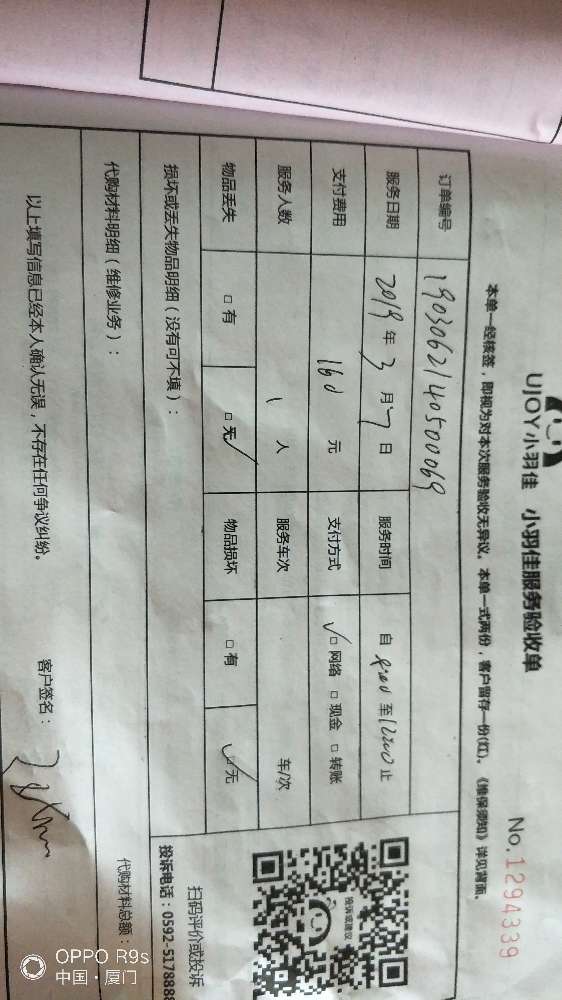 UJOY小羽佳 小羽佳服务验收单
No.1294339
本单一经核签，即视为对本次服务验收无异议。本单一式两份，客户留存一份(红)。《维保须知》详见背面。
订单编号 1903062140500069
服务日期 2019年3月7日 服务时间 自 至12:00止
支付费用 160元 支付方式 ✓□网络 □现金 □转账
服务人数 1人 服务车次 车/次
物品丢失 □有 □无✓ 物品损坏 □有 □无✓
损坏或丢失物品明细（没有可不填）：
代购材料明细（维修业务）：
代购材料总额：
以上填写信息已经本人确认无误，不存在任何争议纠纷。
客户签名：
投诉或建议
扫码评价或投诉
投诉电话：0592-5178888
OPPO R9s
中国·厦门